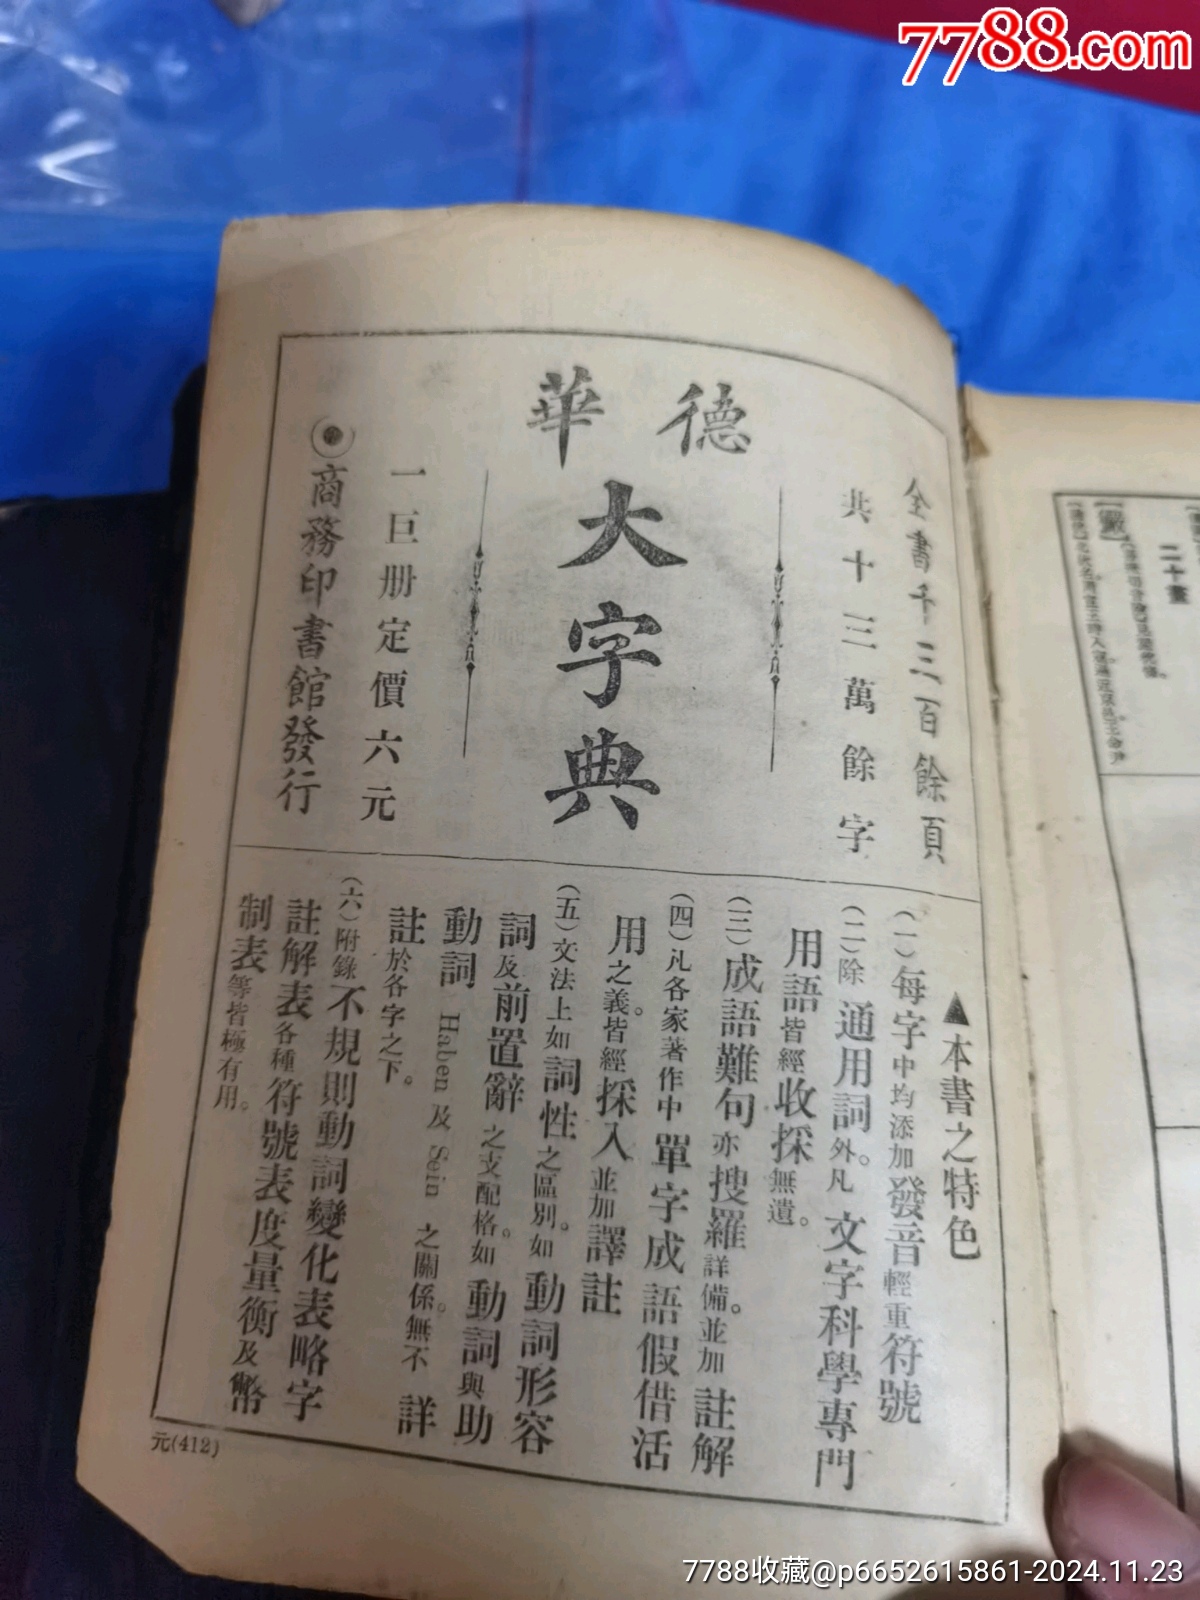 7788.com
德華
大字典
全書千三百餘頁
共十三萬餘字
一巨册定價六元
商務印書館發行
▲本書之特色
(一)每字中均添加發音輕重符號
(二)除通用詞外。凡文字科學專門
用語皆經收採無遺。
(三)成語難句亦搜羅詳備。並加註解
(四)凡各家著作中單字成語假借活
用之義。皆經採入並加譯註
(五)文法上如詞性之區別。如動詞形容
詞及前置辭之支配格。如動詞與助
動詞 Haben 及 Sein 之關係。無不詳
註於各字之下。
(六)附錄不規則動詞變化表略字
註解表各種符號表度量衡及幣
制表等皆極有用。
元(412)
二十畫
7788收藏@p6652615861-2024.11.23